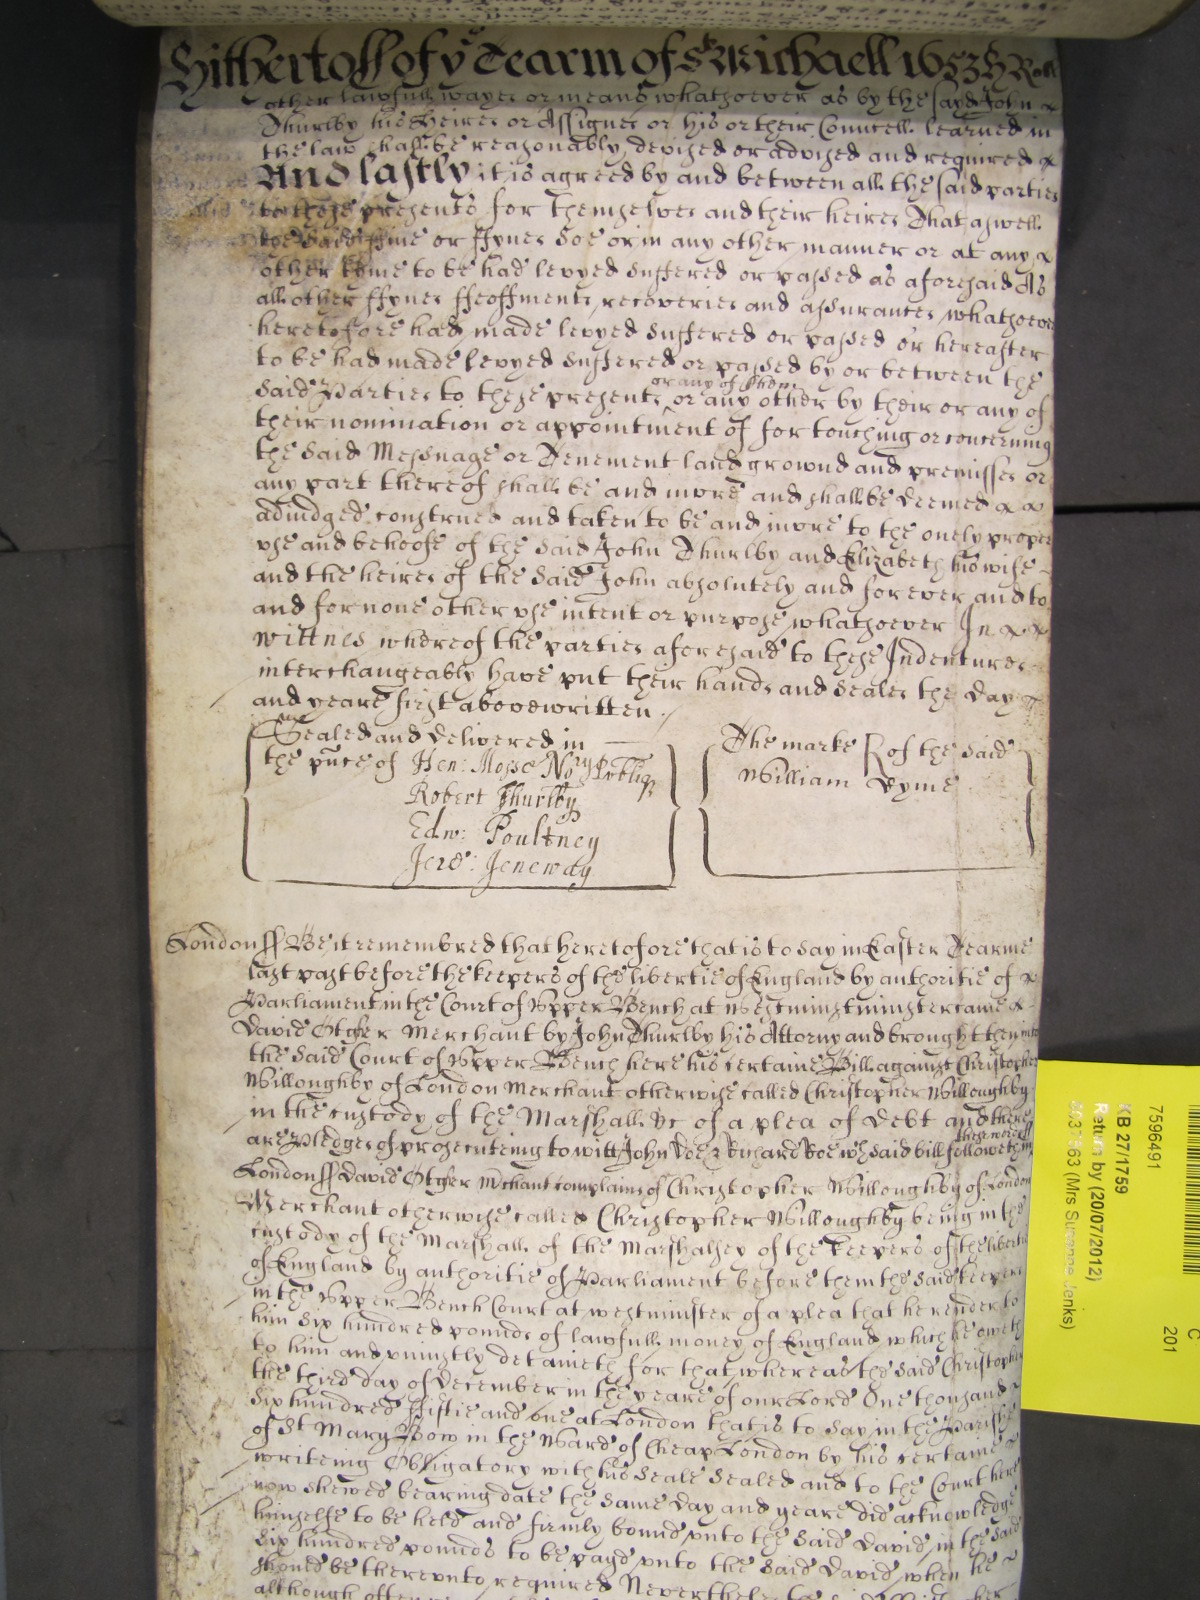 Hitherto ss of ye Tearm of St Michaell 1653 H Roll
other lawfull wayes or means whatsoever as by the sayd John
Thurlby his heires or Assignes or his or their Councell learned in
the law shalbe reasonably devised or advised and required
And lastly it is agreed by and between all the said parties
to these presents for themselves and their heires That aswell
the said ffine or ffynes soe or in any other manner or at any
other time to be had levyed suffered or passed as aforesaid As
all other ffynes ffeoffments recoveries and assurances whatsoever
heretofore had made levyed suffered or passed or hereafter
to be had made levyed suffered or passed by or between the
said Parties to these presents or any of them or any other by their or any of
their nomination or appointment of for touching or concerning
the said Messuage or Tenement land grownd and premisses or
any part thereof shall be and inure and shalbe deemed
adiudged construed and taken to be and inure to the onely proper
vse and behoofe of the said John Thurlby and Elizabeth his wife
and the heires of the said John absolutely and for ever and to
and for none other vse intent or purpose whatsoever In
wittnes whereof the parties aforesaid to these Indentures
interchangeably have put their hands and seales the day
and yeare first abovewritten.
Sealed and delivered in
the pnce of Hen: Mosse Nory Publiq
Robert Thurlby
Edw: Poultney
Jere: Jeneway
The marke of the said
William Dyme
London ss Be it remembred that heretofore that is to say in Easter Tearme
last past before the keepers of the libertie of England by authoritie of
Parliament in the Court of Vpper Bench at Westminstminster came
David Otger Merchant by John Thurlby his Attorny and brought then into
the said Court of Vpper Bench here his certaine Bill against Christopher
Willoughby of London Merchant otherwise called Christopher Willoughby
in the custody of the Marshall &c of a plea of debt and there
are Pledges of prosecuteing to witt John Doe & Richard Roe wch said bill followeth in
these words ss
London ss David Otger Mchant complaines of Christopher Willoughby of London
Merchant otherwise called Christopher Willoughby being in the
custody of the Marshall of the Marshalsey of the keepers of the libertie
of England by authoritie of Parliament before them the said keepers
in the Vpper Bench Court at westminster of a plea that he render to
him six hundred pounds of lawfull money of England which he oweth
to him and vniustly detaineth for that whereas the said Christopher
the third day of December in the yeare of our Lord One thousand
six hundred ffiftie and one at London that is to say in the Parishe
of St Mary Bow in the Ward of Cheap London by his certaine
writeing Obligatory with his seale sealed and to the Court here
now shewed bearing date the same day and yeare did acknowledge
himselfe to be held and firmly bound vnto the said David in the said
six hundred pounds to be payd vnto the said David when he
should be therevnto required Neverthelesse
although often
7596491
KB 27/1759
Return by (20/07/2012)
(Mrs Susanne Jenks)
C
201